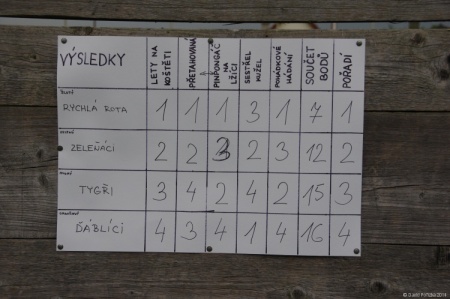 VÝSLEDKY LETY NA KOŠTĚTI PŘETAHOVANÁ PINPONGÁČ NA LŽÍCI SESTŘEL KUŽEL POHÁDKOVÉ HÁDÁNÍ SOUČET BODŮ POŘADÍ
ŽLUTÝ
RYCHLÁ ROTA 1 1 1 3 1 7 1
ZELENÝ
ZELEŇÁCI 2 2 3 2 3 12 2
MODRÝ
TYGŘI 3 4 2 4 2 15 3
ĎÁBLÍCI 4 3 4 1 4 16 4